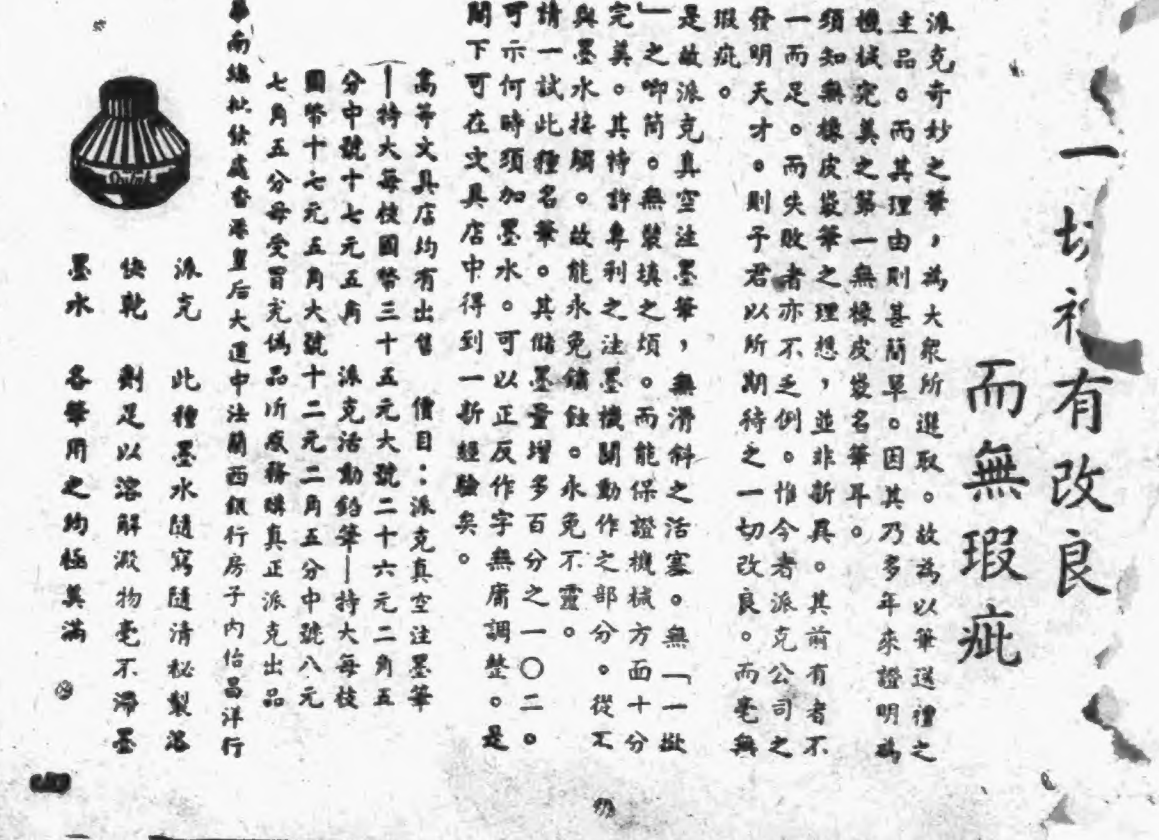 一切
有改良
而無瑕疵
派克奇妙之筆，為大眾所選取。故為以筆送禮之
主品。而其理由則甚簡單。因其乃多年來證明為
機械完美之第一無橡皮袋名筆耳。
須知無橡皮袋筆之理想，並非新異。其前有者不
一而足。而失敗者亦不乏例。惟今者派克公司之
發明天才。則予君以所期待之一切改良。而毫無
瑕疵。
是故派克真空注墨筆，無滑斜之活塞。無「一撳
」之唧筒。無裝填之煩。而能保證機械方面十分
完美。其特許專利之注墨機關動作之部分。從不
與墨水接觸。故能永免鏽蝕。永免不靈。
請一試此種名筆。其儲墨量增多百分之一〇二。
可示何時須加墨水。可以正反作字無庸調整。是
閣下可在文具店中得到一新經驗矣。
高等文具店均有出售　價目：派克真空注墨筆
—特大每枝國幣三十五元大號二十六元二角五
分中號十七元五角　派克活動鉛筆—特大每枝
國幣十七元五角大號十二元二角五分中號八元
七角五分毋受冒充偽品所惑務購真正派克出品
華南總批發處香港皇后大道中法蘭西銀行房子內怡昌洋行
派克　此種墨水隨寫隨清秘製溶
快乾　劑足以溶解澱物毫不滯墨
墨水　各筆用之均極美滿
Quink